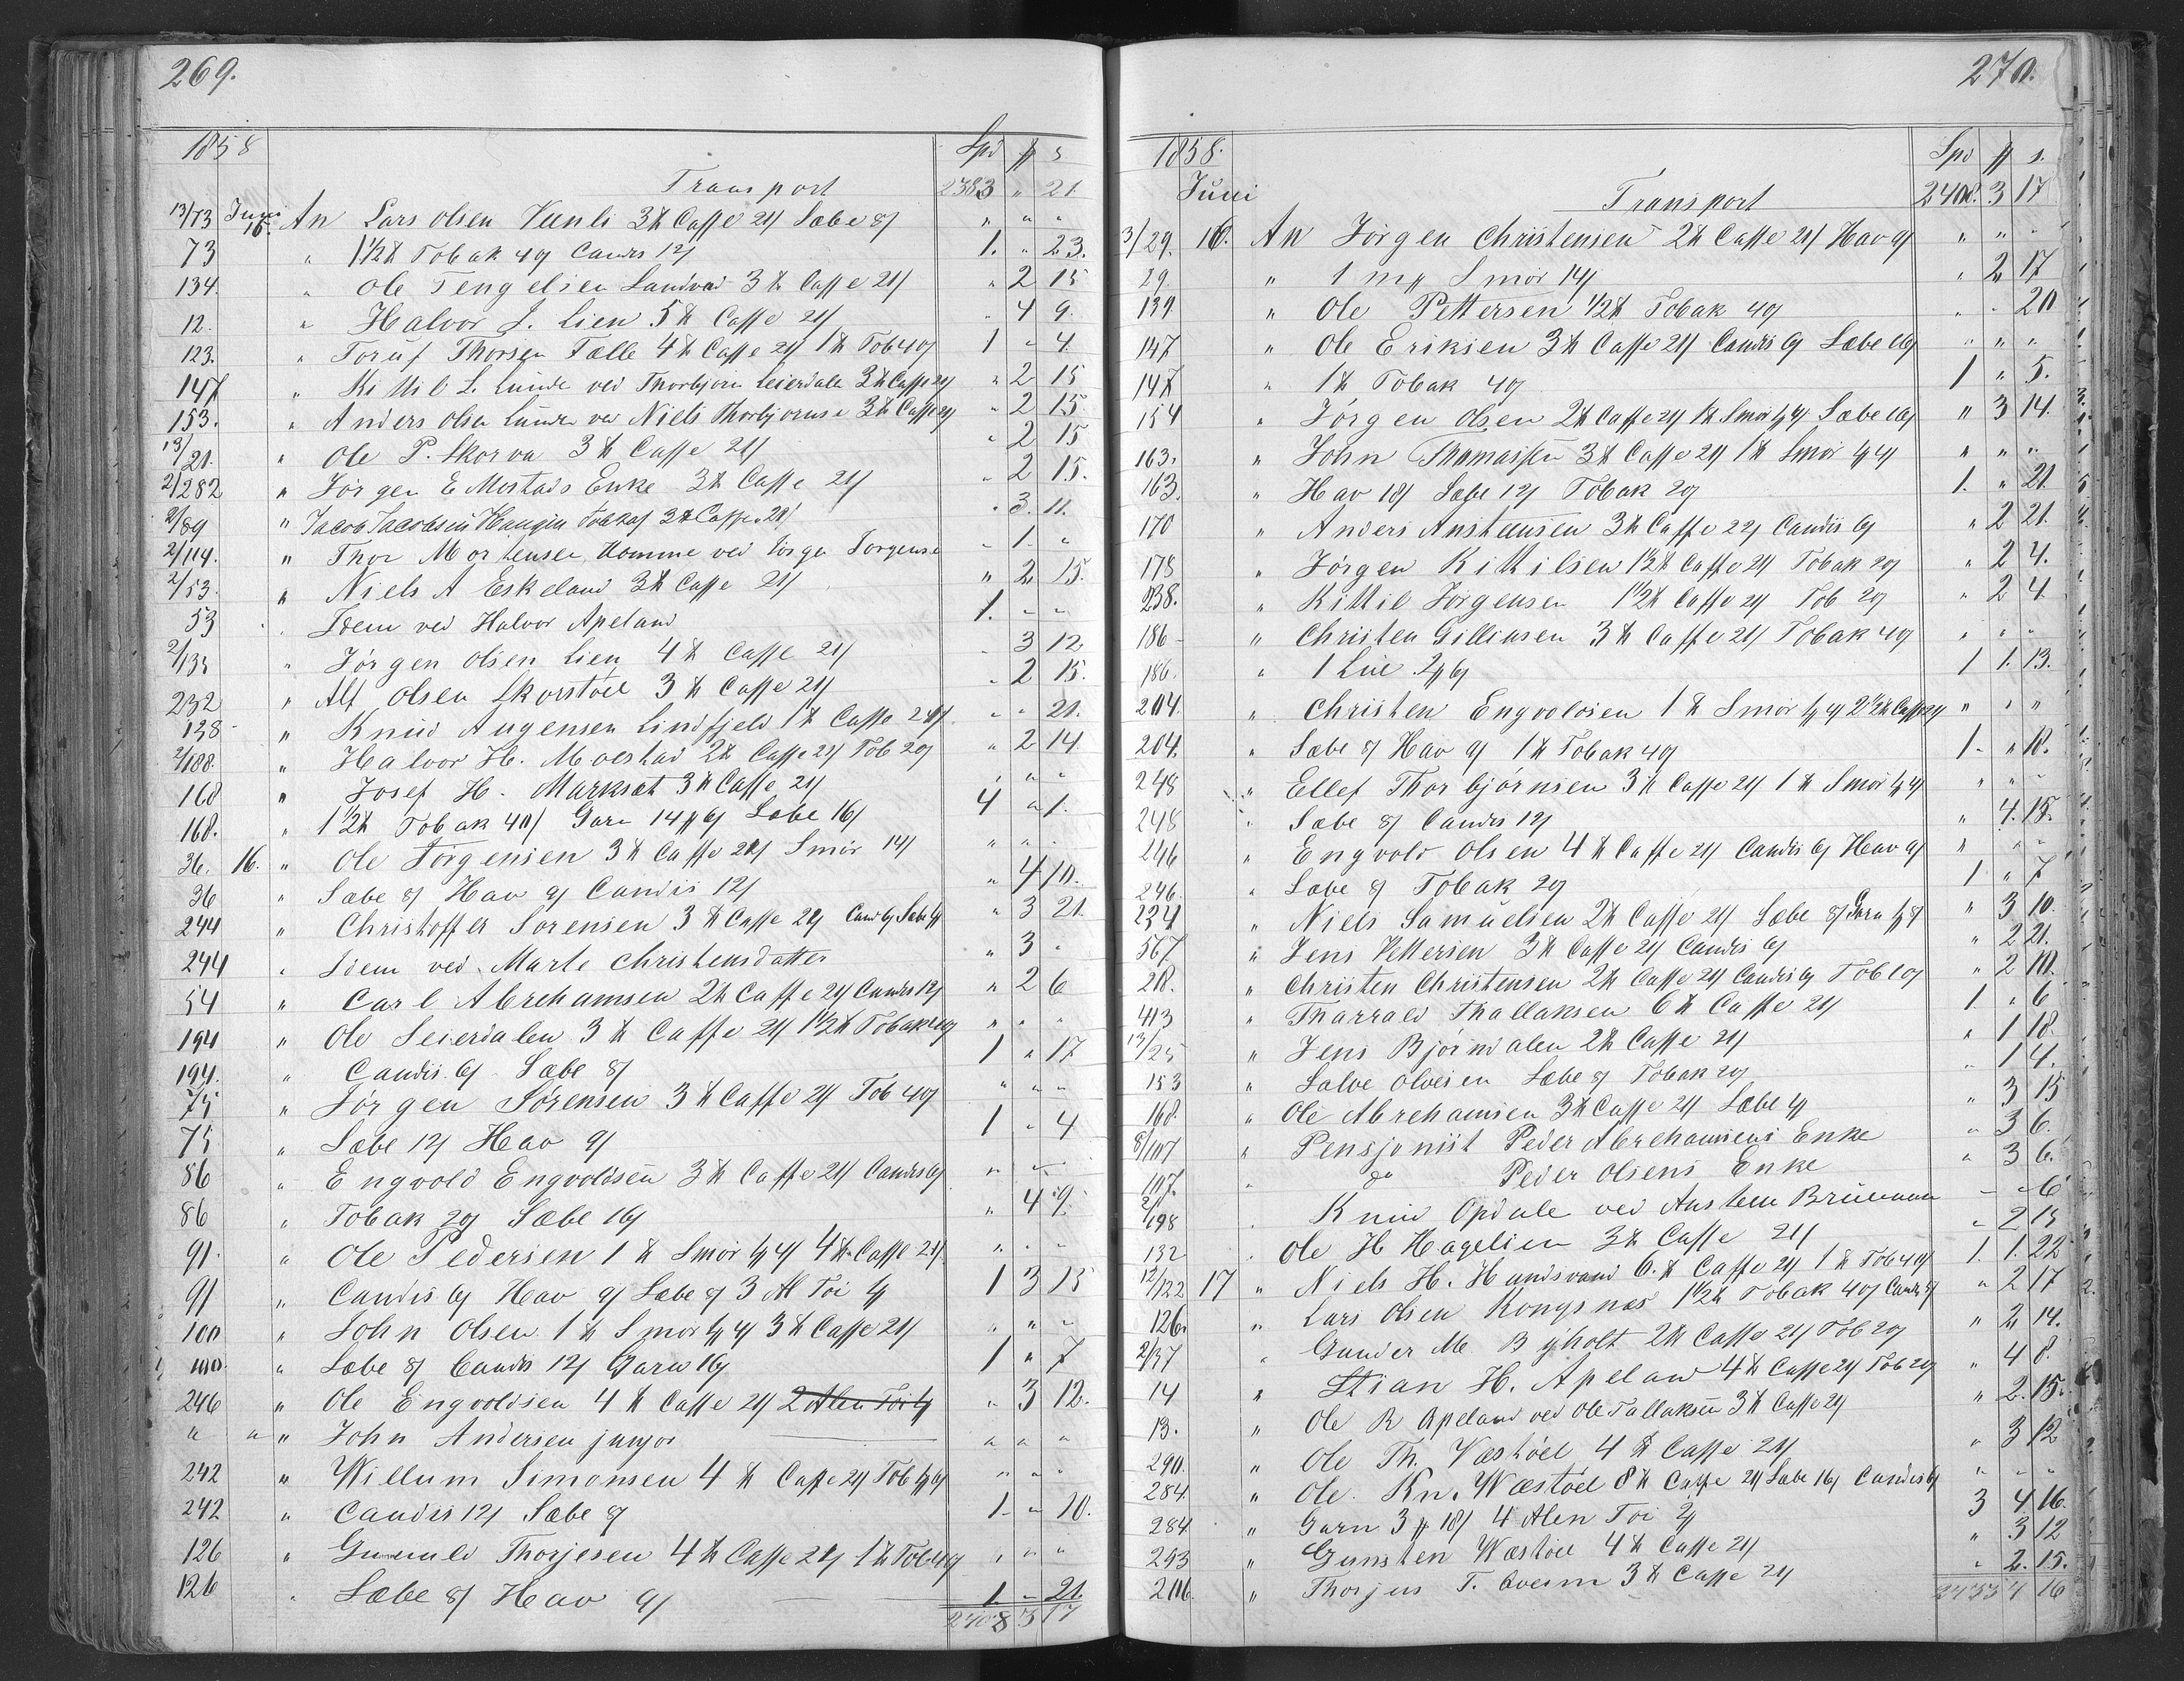 269.
1858 Spd # s
Transport 2383 " 21
13/73 Juni 15. An Lars olsen Veenli 3 ℔ Caffe 21/ Sæbe 8/ " " "
73 " 1 1/2 ℔ Tobak 40/ Candis 12/ 1. " 23.
134. " Ole Tengelsen Landvad 3 ℔ Caffe 21/ " 2 15
12. " Halvor J. Lien 5 ℔ Caffe 21/ " 4 9.
123. " Toruf Thorsen Fælle 4 ℔ Caffe 21/ 1 ℔ Tob 40/ 1 " 4.
147 " Kittil L. Lunde ved Thorbjørn Seierdale 3 ℔ Caffe 21/ " 2 15
153. " Anders olsen Lunde ved Niels Thorbjornse 3 ℔ Caffe 21/ " 2 15.
13/21. " Ole P. Skorva 3 ℔ Caffe 21/ " 2 15
2/282 " Jørgen E Mostads Enke 3 ℔ Caffe 21/ " 2 15.
2/89 " Jacob Jacobsen Haugen 3 ℔ Caffe 21/ " 3. 11.
2/114. " Thor Mortensen Homme ved Jørgen Jorgense " 1. "
2/53. " Niels A Eskeland 3 ℔ Caffe 21/ " 2 15.
53 " Idem ved Halvor Apeland 1. " "
2/135 " Jørgen olsen Lien 4 ℔ Caffe 21/ " 3 12
232 " Alf olsen Skorstøel 3 ℔ Caffe 21/ " 2 15.
138 " Knud Augensen Lindfjeld 1 ℔ Caffe 21/ " " 21.
2/188. " Halvor H. Moestad 2 ℔ Caffe 21/ Tob 20/ " 2 14.
168 " Josef H. Marksæt 3 ℔ Caffe 21/ " " "
168. " 1 1/2 ℔ Tobak 40/ Garn 14 # 6/ Sæbe 16/ 4 " 1.
36. 16. " Ole Jørgensen 3 ℔ Caffe 21/ Smør 14/ " " "
36 " Sæbe 8/ Hav 9/ Candis 12/ " 4 10.
244 " Christoffer Sorensen 3 ℔ Caffe 21/ Cand 6/ Sæbe 4/ " 3 21.
244 " Idem ved Marte Christensdatter " 3 "
54 " Carl Abrehamsen 2 ℔ Caffe 21/ Candis 12/ " 2 6
194 " Ole Seierdalen 3 ℔ Caffe 21/ 1 1/2 ℔ Tobak 40/ " " "
194. " Candis 6/ Sæbe 8/ 1 " 17
75 " Jørgen Sørensen 3 ℔ Caffe 21/ Tob 40/ " " "
75 " Sæbe 12/ Hav 9/ 1 " 4
86 " Engvold Engvoldsen 3 ℔ Caffe 21/ Candis 6/ " " "
86 " Tobak 20/ Sæbe 16/ " 4 9.
91. " Ole Pedersen 1 ℔ Smør 4/ 4 ℔ Caffe 21/ " " "
91 " Candis 6/ Hav 9/ Sæbe 8/ 3 Al Toi 1 3 15
100 " John Olsen 1 ℔ Smør 3 ℔ Caffe 21/ " " "
100. " Sæbe 8/ Candis 12/ Garn 16/ 1 " 7
246 " Ole Engvoldsen 4 ℔ Caffe 21/ 2 Alen Toi " 3 12.
" " " John Andersen junjor " " "
242 " Willum Simonsen 4 ℔ Caffe 21/ Tob " " "
242 " Candis 12/ Sæbe 8/ 1 " 10.
126 " Gunuld Thorjesen 4 ℔ Caffe 21/ 1 ℔ Tob 40/ " " "
126 " Sæbe 8/ Hav 9/ 1 " 21.
2408 3 17
270.
1858. Spd # s.
Juni Transport 2408. 3 17
3/29. 16. An Jörgen Christensen 2 ℔ Caffe 21/ Hav 9/ " " "
29. " 1 m# Smør 14/ " 2 17
139. " Ole Pettersen 1/2 ℔ Tobak 40/ " " 20
147 " Ole Eriksen 3 ℔ Caffe 21/ Candis 6/ Sæbe 16/ " " "
147 " 1 ℔ Tobak 40/ 1 " 5.
154 " Jörgen Olsen 2 ℔ Caffe 21/ 1 ℔ Smør Sæbe 16/ " 3 14.
163. " John Thomassen 3 ℔ Caffe 21/ 1 ℔ Smør " " "
163. " Hav 18/ Sæbe 12/ Tobak 20/ 1. " 21.
170 " Anders Anstensen 3 ℔ Caffe 22/ Candis 6/ " 2 21.
178 " Jørgen Kittilsen 1 1/2 ℔ Caffe 21/ Tobak 20/ " 2 4.
238. " Kittil Jørgensen 1 1/2 ℔ Caffe 21/ Tob 20/ " 2 4
186 " Christen Gillinsen 3 ℔ Caffe 21/ Tobak 40/ " " "
186. " 1 Lue 1 1. 13.
204. " Christen Engvoldsen 1 ℔ Smør 2 1/2 ℔ Caffe 21/ " " "
204. " Sæbe 8/ Hav 9/ 1 ℔ Tobak 40/ 1. " 18.
248 " Ellef Thorbjørnsen 3 ℔ Caffe 21/ 1 ℔ Smør " " "
248 " Sæbe 8/ Candis 12/ " 4. 15.
246 " Engvold Olsen 4 ℔ Caffe 21/ Candis 6/ Hav 9/ " " "
246. " Sæbe 8/ Tobak 20/ 1 " 7
234 " Niels Samuelsen 2 ℔ Caffe 21/ Sæbe 8/ Garn " 3 10.
567 " Jens Pettersen 3 ℔ Caffe 21/ Candis 6/ " 2 21.
218. " Christen Christensen 2 ℔ Caffe 21/ Candis 6/ Tob 10/ " 2 10.
413 " Tharrald Thallaksen 6 ℔ Caffe 21/ 1 " 6
13/25 " Jens Bjørndalen 2 ℔ Caffe 21/ " 1 18.
153 " Salve Olvesen Sæbe 8/ Tobak 20/ " 1 4.
168. " Ole Abrehamsen 3 ℔ Caffe 21/ Sæbe " 3 15
8/107 " Pensjonist Peder Abrehamsens Enke " 3 6.
107. " do Peder Olsens Enke " 3 6.
2/198 " Knud Opdale ved Austen Bruunun " " 6
132 " Ole H Hagelien 3 ℔ Caffe 21/ " 2 15
12/122 17 " Niels H. Hundsvand 6 ℔ Caffe 21/ 1 ℔ Tob 40/ 1. 1. 22
126. " Lars Olsen Kongsnæs 1 1/2 ℔ Tobak 40/ Candis 8/ " 2 17
2/37 " Gunder M. Byholt 2 ℔ Caffe 21/ Tob 20/ " 2 14.
14 " Stian H. Apeland 4 ℔ Caffe 21/ Tob 20/ " 4 8.
13. " Ole R Apeland ved Ole Tallaksen 3 ℔ Caffe 21/ " 2. 15.
290. " Ole Th. Væstøel 4 ℔ Caffe 21/ " 3 12
284. " Ole Kn. Wæstøel 8 ℔ Caffe 21/ Sæbe 16/ Candis 6/ " " "
284. " Garn 3 # 18/ 4 Alen Toi 3 4 16.
293 " Gunsten Wæstøel 4 ℔ Caffe 21/ " 3 12
206. " Thorjus T. Qveim 3 ℔ Caffe 21/ " 2. 15.
2433 4 16